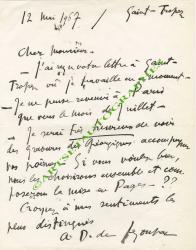 12 mai 1957 / Saint-Tropez
Cher Monsieur -
- J'ai reçu votre lettre à Saint-
Tropez où je travaille en ce moment -
- Je ne pense revenir à Paris
que vers le mois juillet -
- Je serai très heureux de voir
des gravures des Géorgiques accompagner
vos poèmes. Si vous voulez bien,
nous les choisirons ensemble et com-
poserons la mise en Pages - ??
Croyez à mes sentiments les
plus distingués
A D. de Segonzac